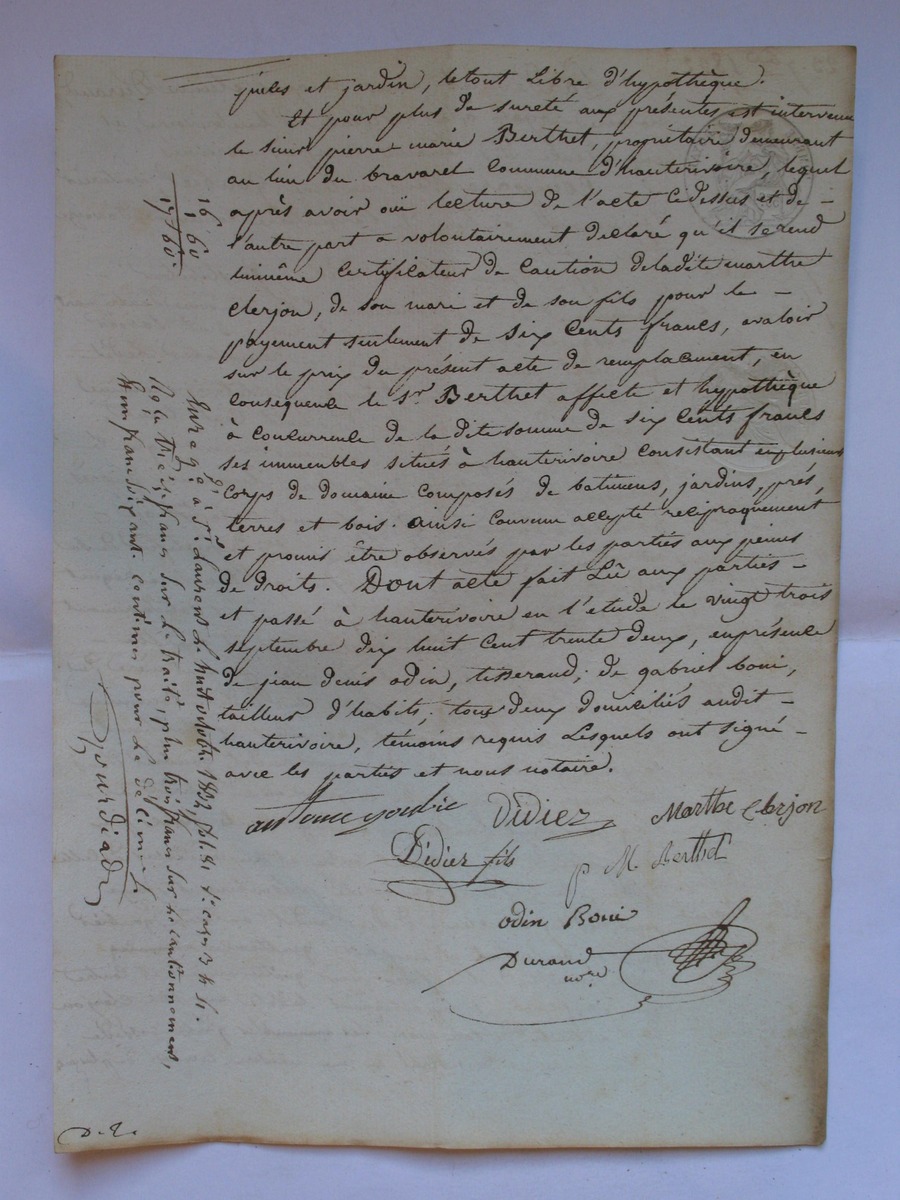 pièces et jardin, letout Libre d'hypothèque.
Et pour plus de sureté aux présentes est intervenu
le sieur pierre marie Berthet, propriétaire demeurant
au lieu du bravaret commune d'hauterivoire, lequel
après avoir ouï lecture de l'acte Cidessus et de –
l'autre part a volontairement déclaré qu'il serend
luimême Certificateur de Caution deladite marthe
Clerjon, de son mari et de son fils pour le –
payement seulement de six Cents francs, avaloir
sur le prix du présent acte de remplacement, en
Consequence le Sr. Berthet affecte et hypothèque
à Concurrence de la dite somme de six Cents francs
ses immeubles situés à hauterivoire Consistant enplusieurs
Corps de domaine Composés de batimens, jardins, prés,
terres et bois. ainsi Convenu accepté réciproquement
et promis être observés par les parties aux peines
de droits. Dont acte fait Lû aux parties –
et passé à hauterivoire en l'étude le vingt trois
septembre dix huit Cent trente deux, enprésence
de jean denis odin, tisserand; de gabriel boni,
tailleur d'habits; tous deux domiciliés audit –
hauterivoire, témoins requis Lesquels ont signé –
avec les parties et nous notaire.
antoine
Didiez
Marthe Clerjon
Didier fils
p M Berthet
odin Boni
Durand
nore
16 60
1
17 60.
Enregé. à St. Laurent le huit octobre 1832, fol. 81 Vo. cases 3 & 4.
Reçu treize francs sur le traité, plus trois francs sur le cautionnement,
Gourdiat
D. L.